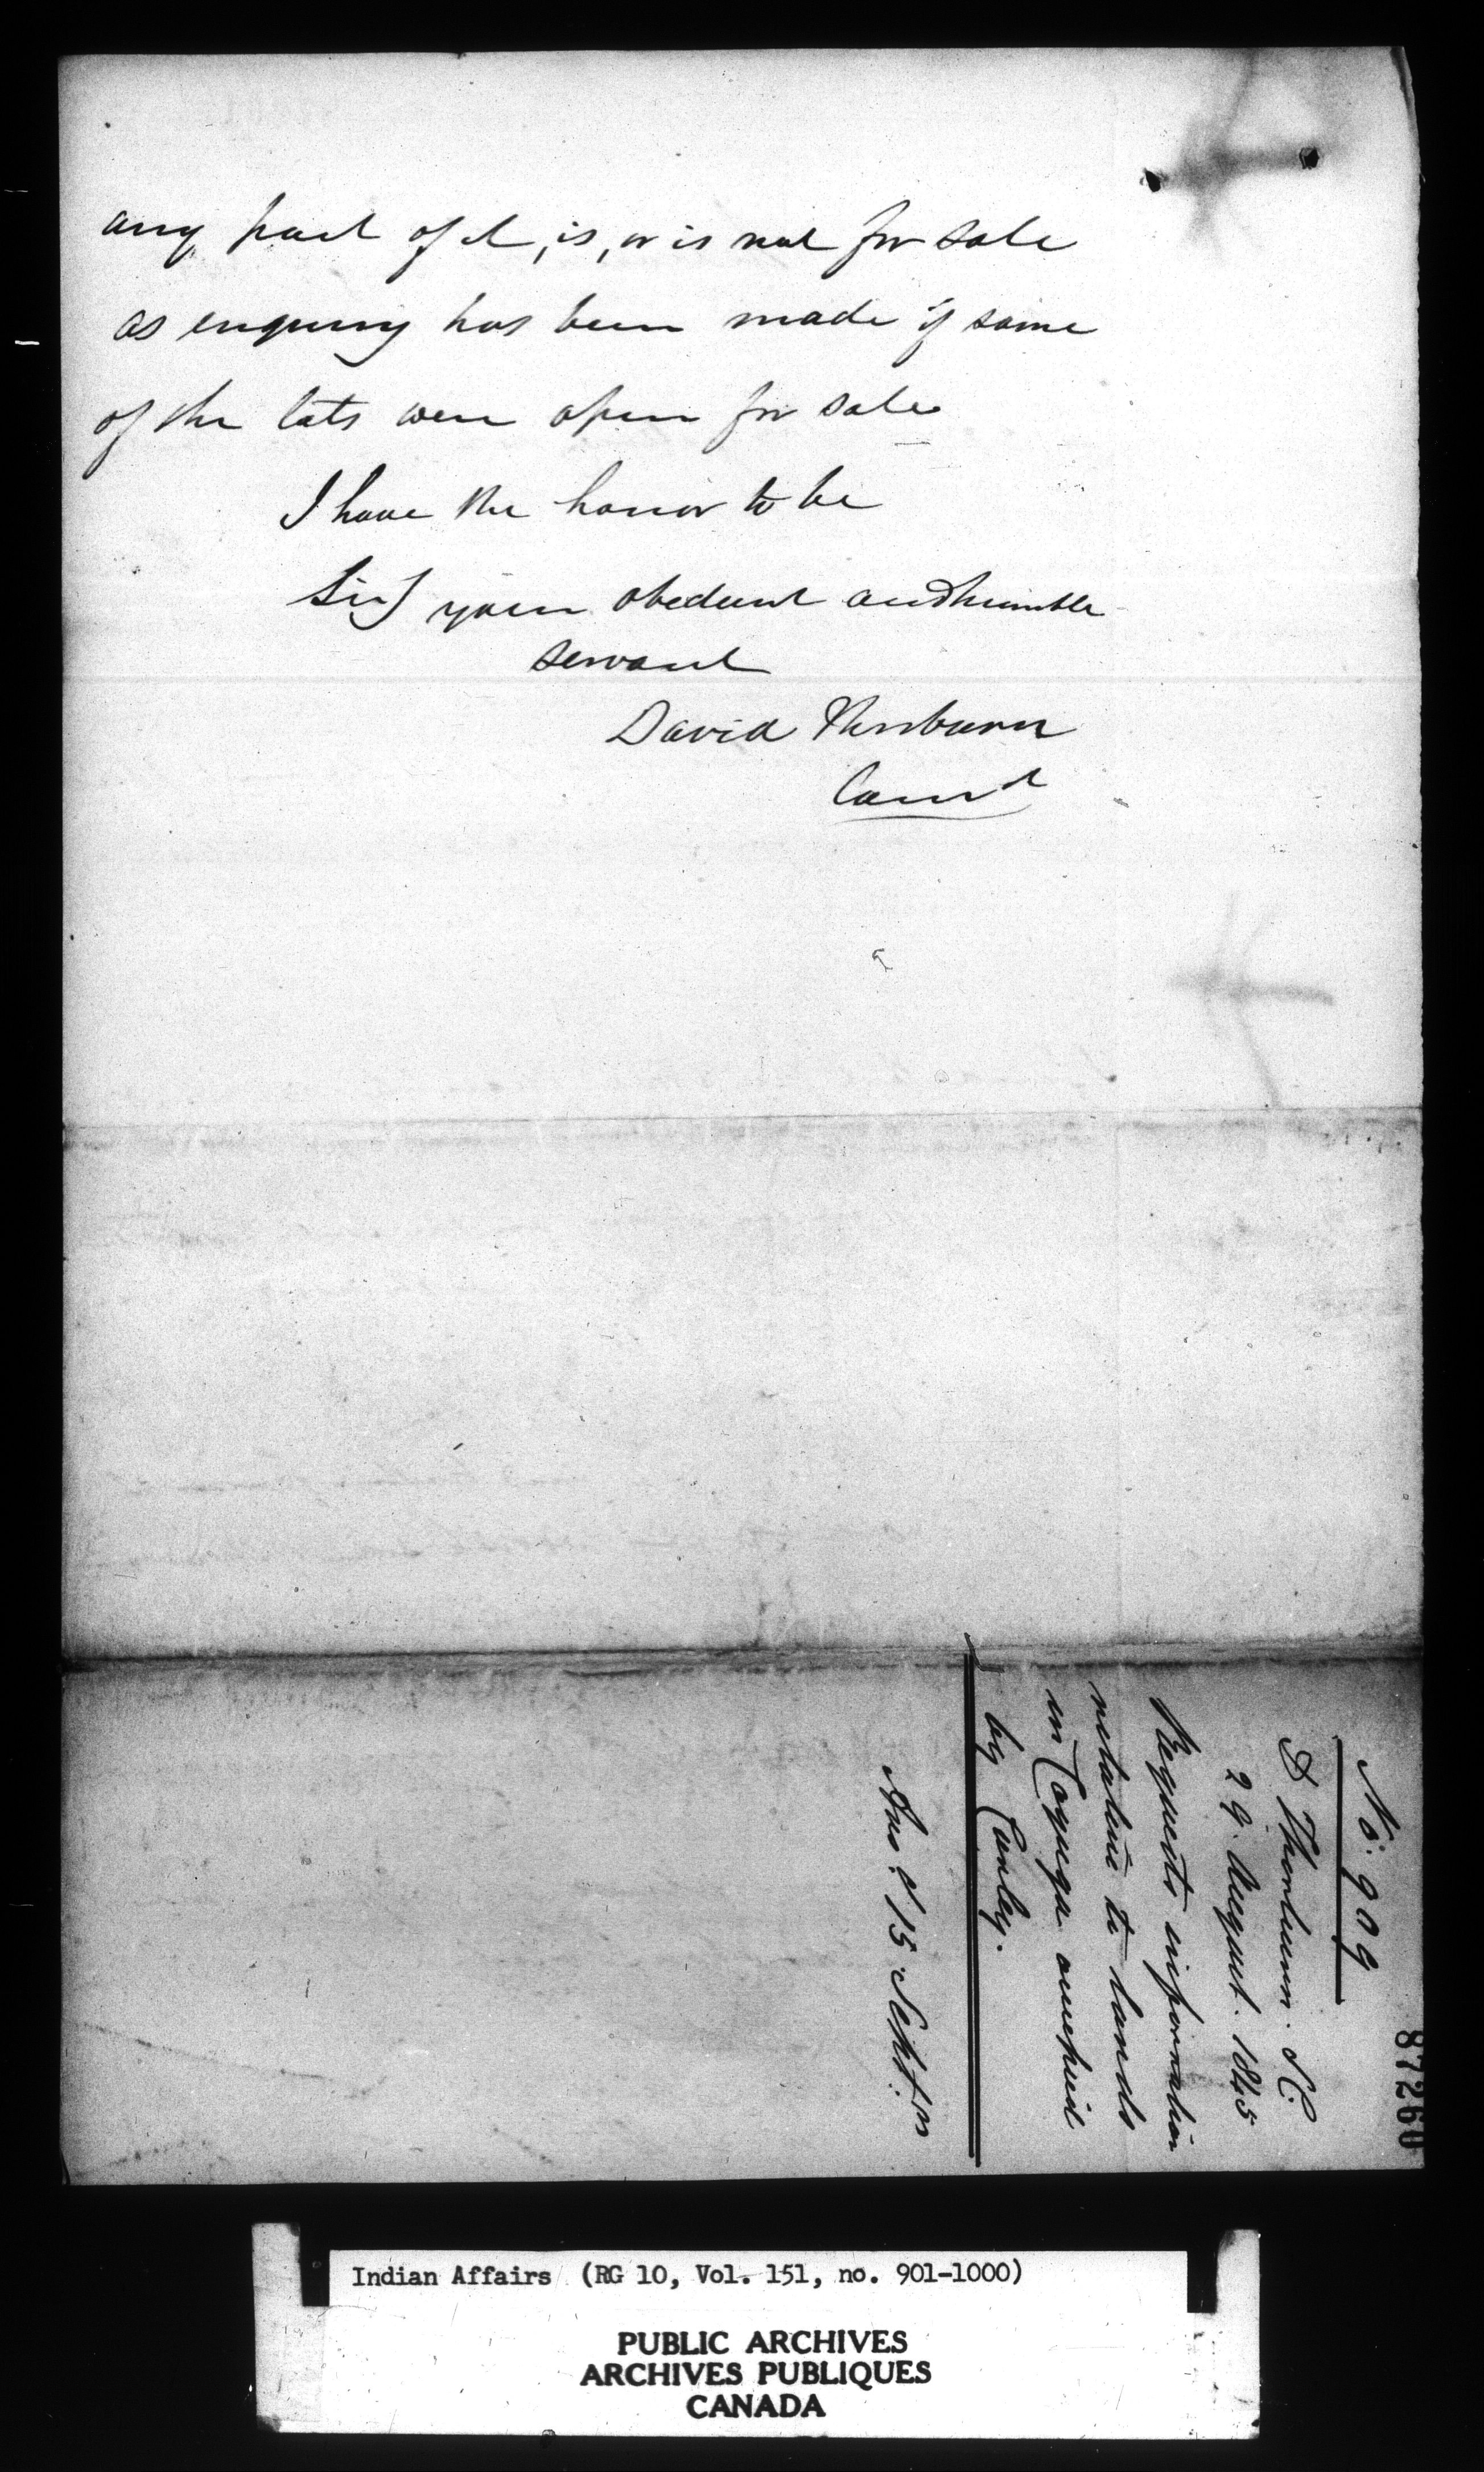 any part of it, is, or is not for sale
as enquiry has been made if some
of the lots were open for sale
I have the honor to be
Sir your obedient and humble
servant
David Thorburn
Com^r
87260
No. 909
D Thorburn. S.C.
29. August. 1845
Requests information
relative to lands
in Cayuga occupied
by Conley.
Ans.^d 15. Sept.^r
Indian Affairs (RG 10, Vol. 151, no. 901-1000)
PUBLIC ARCHIVES
ARCHIVES PUBLIQUES
CANADA